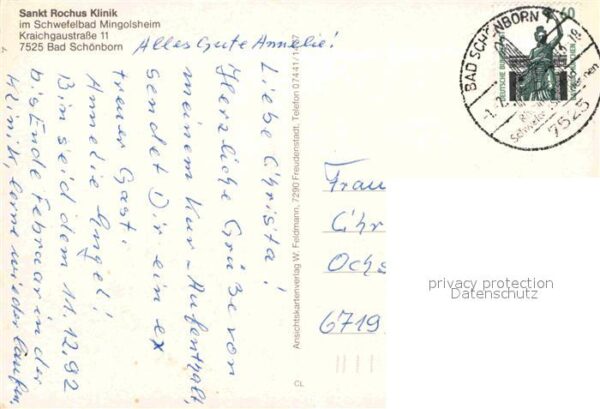 Sankt Rochus Klinik
im Schwefelbad Mingolsheim
Kraichgaustraße 11
7525 Bad Schönborn
Alles Gute Annelie!
Liebe Christa!
Herzliche Grüße von
meinem Kur-Aufenthalt,
sendet Dir ein ex
treuer Gast:
Annelie Engel!
Bin seid dem 11.12.92
bis Ende Februar in der
Klinik, lerne wieder laufen.
Ansichtskartenverlag W. Feldmann, 7290 Freudenstadt, Telefon 07441/
CL
60
DEUTSCHE BUNDESPOST
BAD SCHÖNBORN
7525
Frau
Chr
Ochs
6719
privacy protection
Datenschutz